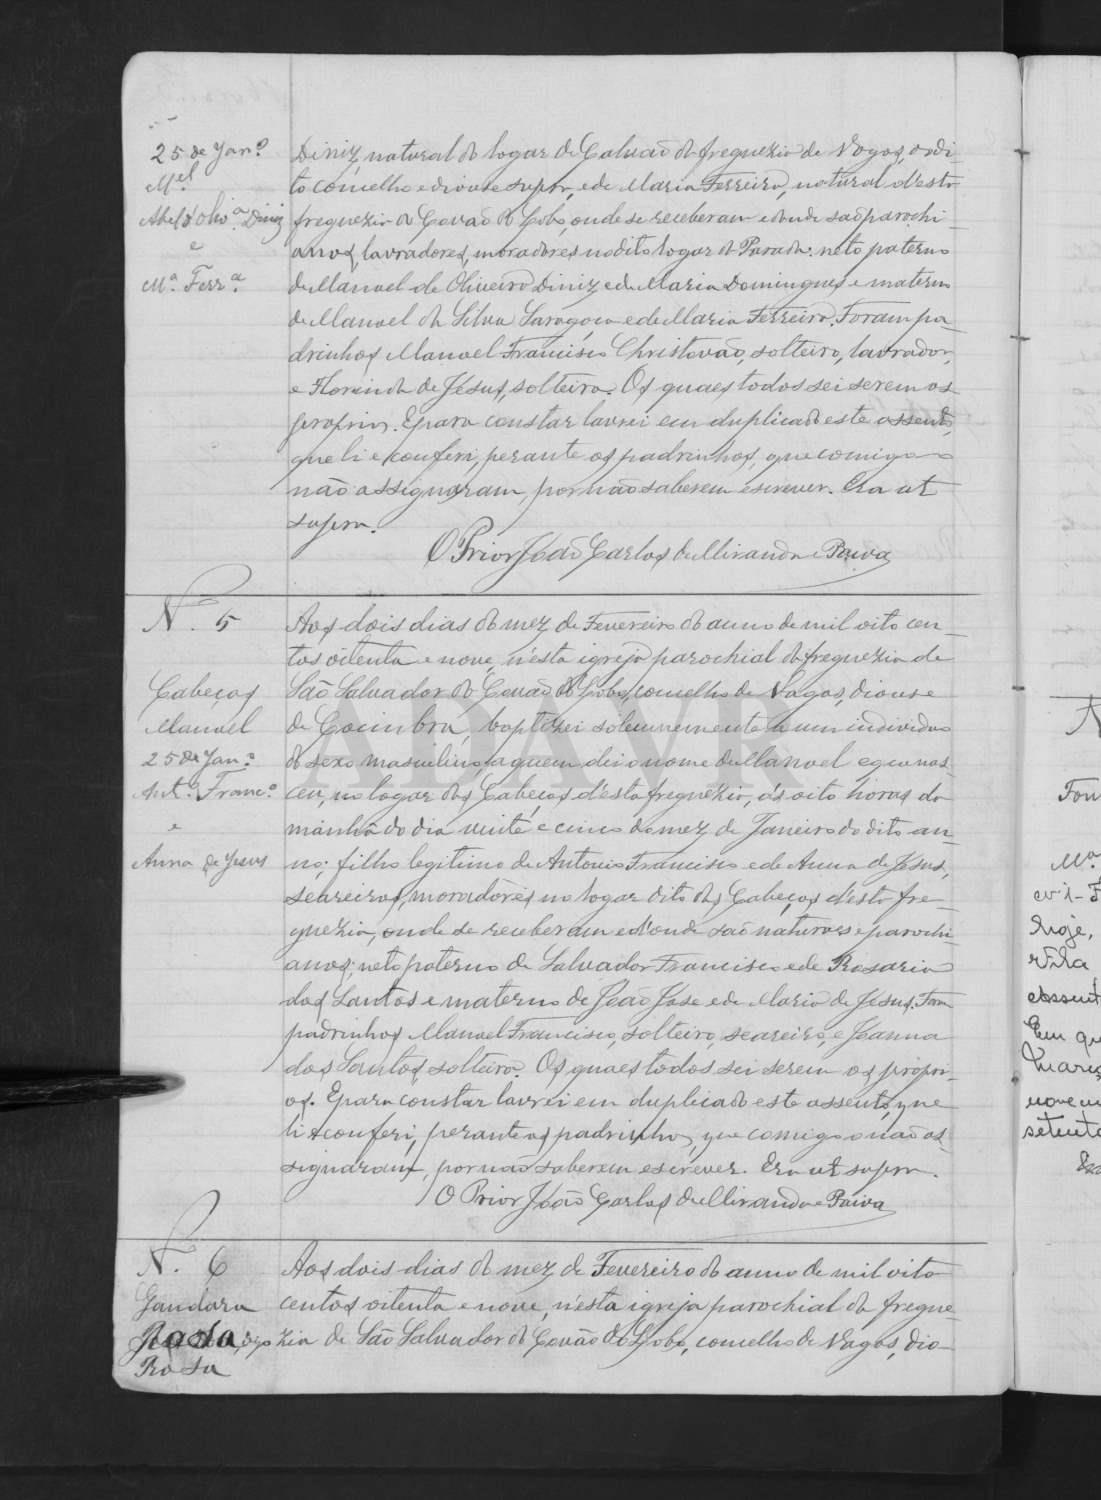 25 de Jan.º
M.el
Abel d'Oliv.ª Diniz
e
M.ª Ferr.ª
Diniz, natural do logar de Calvão da freguezia de Vagos, do di-
to concelho e diocese supra, e de Maria Ferreira, natural d'esta
freguezia do Covão do Lobo, onde se receberam e donde são parochi-
anos, lavradores, moradores no dito logar da Parada: neto paterno
de Manoel de Oliveira Diniz e de Maria Domingues e materno
de Manoel da Silva Saragoça e de Maria Ferreira. Foram pa-
drinhos Manoel Francisco Christovão, solteiro, lavrador,
e Florinda de Jesus, solteira. Os quaes todos sei serem os
proprios. E para constar lavrei em duplicado este assento,
que li e conferi, perante os padrinhos, que comigo
não assignaram, por não saberem escrever. Era ut
supra.
O Prior João Carlos de Miranda e Paiva
N. 5
Cabeços
Manoel
25 de Jan.º
Ant.º Franc.º
e
Anna de Jesus
Aos dois dias do mez de Fevereiro do anno de mil oito cen-
tos oitenta e nove, n'esta igreja parochial da freguezia de
São Salvador do Covão do Lobo, concelho de Vagos, diocese
de Coimbra, baptizei solemnemente a um individuo
do sexo masculino a quem dei o nome de Manoel e que nas-
ceu, no logar dos Cabeços d'esta freguezia, ás oito horas da
manhã do dia vinte e cinco do mez de Janeiro do dito an-
no; filho legitimo de Antonio Francisco e de Anna de Jesus,
seareiros, moradores no logar dito dos Cabeços d'esta fre-
guezia, onde se receberam e d'onde são naturaes e parochi-
anos; neto paterno de Salvador Francisco e de Rosaria
dos Santos e materno de João José e de Maria de Jesus. Foram
padrinhos Manoel Francisco, solteiro, seareiro, e Joanna
dos Santos, solteira. Os quaes todos sei serem os propri-
os. E para constar lavrei em duplicado este assento, que
li e conferi, perante os padrinhos, que comigo não as-
signaram, por não saberem escrever. Era ut supra.
O Prior João Carlos de Miranda e Paiva
N. 6
Gandara
Rosa
Rosa
Aos dois dias do mez de Fevereiro do anno de mil oito
centos oitenta e nove, n'esta igreja parochial da fregue-
zia de São Salvador do Covão do Lobo, concelho de Vagos, dio-
ADAVR
N
Fon
M.ª
hoje,
assent
Em qu
nove
setenta